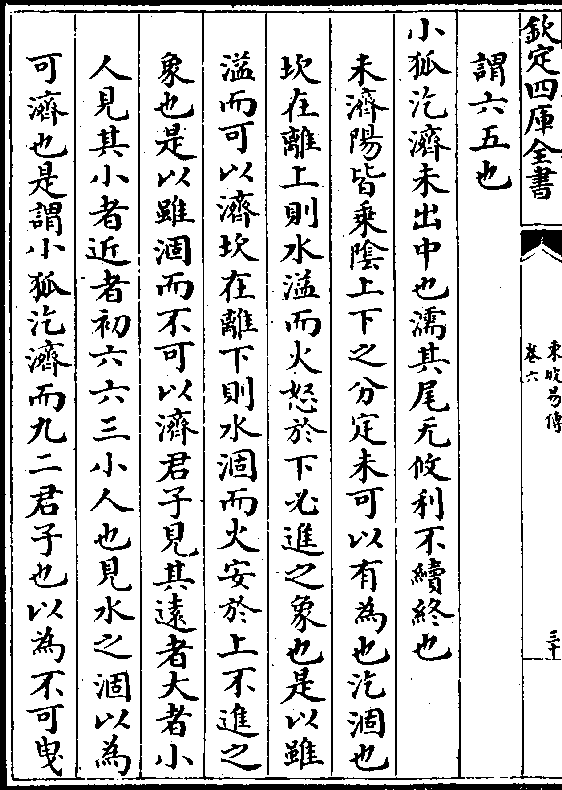 欽定四庫全書
東坡易傳
卷六
三十
謂六五也
小狐汔濟未出中也濡其尾无攸利不續終也
未濟陽皆乗陰上下之分定未可以有為也汔涸也
坎在離上則水溢而火怒於下必進之象也是以雖
溢而可以濟坎在離下則水涸而火安於上不進之
象也是以雖涸而不可以濟君子見其逺者大者小
人見其小者近者初六六三小人也見水之涸以為
可濟也是謂小狐汔濟而九二君子也以為不可曳